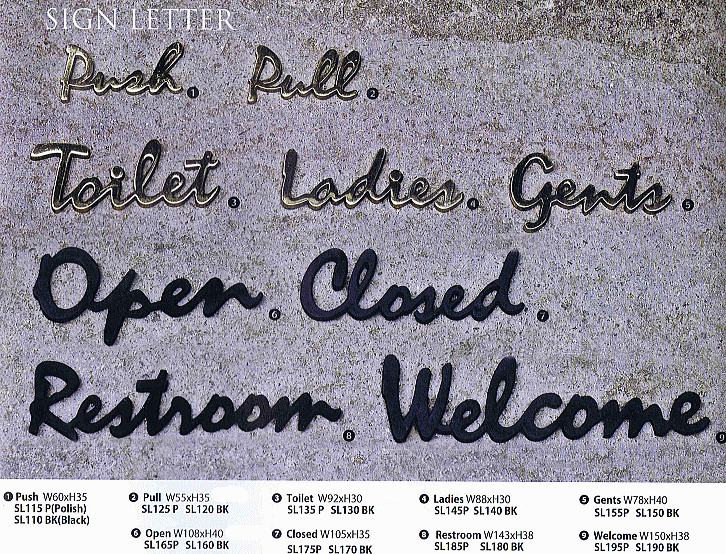 SIGN LETTER
Push ❶ Pull ❷
Toilet ❸ Ladies ❹ Gents ❺
Open ❻ Closed ❼
Restroom ❽ Welcome ❾
❶ Push W60xH35
SL115 P(Polish)
SL110 BK(Black)
❷ Pull W55xH35
SL125 P SL120 BK
❸ Toilet W92xH30
SL135 P SL130 BK
❹ Ladies W88xH30
SL145P SL140 BK
❺ Gents W78xH40
SL155P SL150 BK
❻ Open W108xH40
SL165P SL160 BK
❼ Closed W105xH35
SL175P SL170 BK
❽ Restroom W143xH38
SL185P SL180 BK
❾ Welcome W150xH38
SL195P SL190 BK